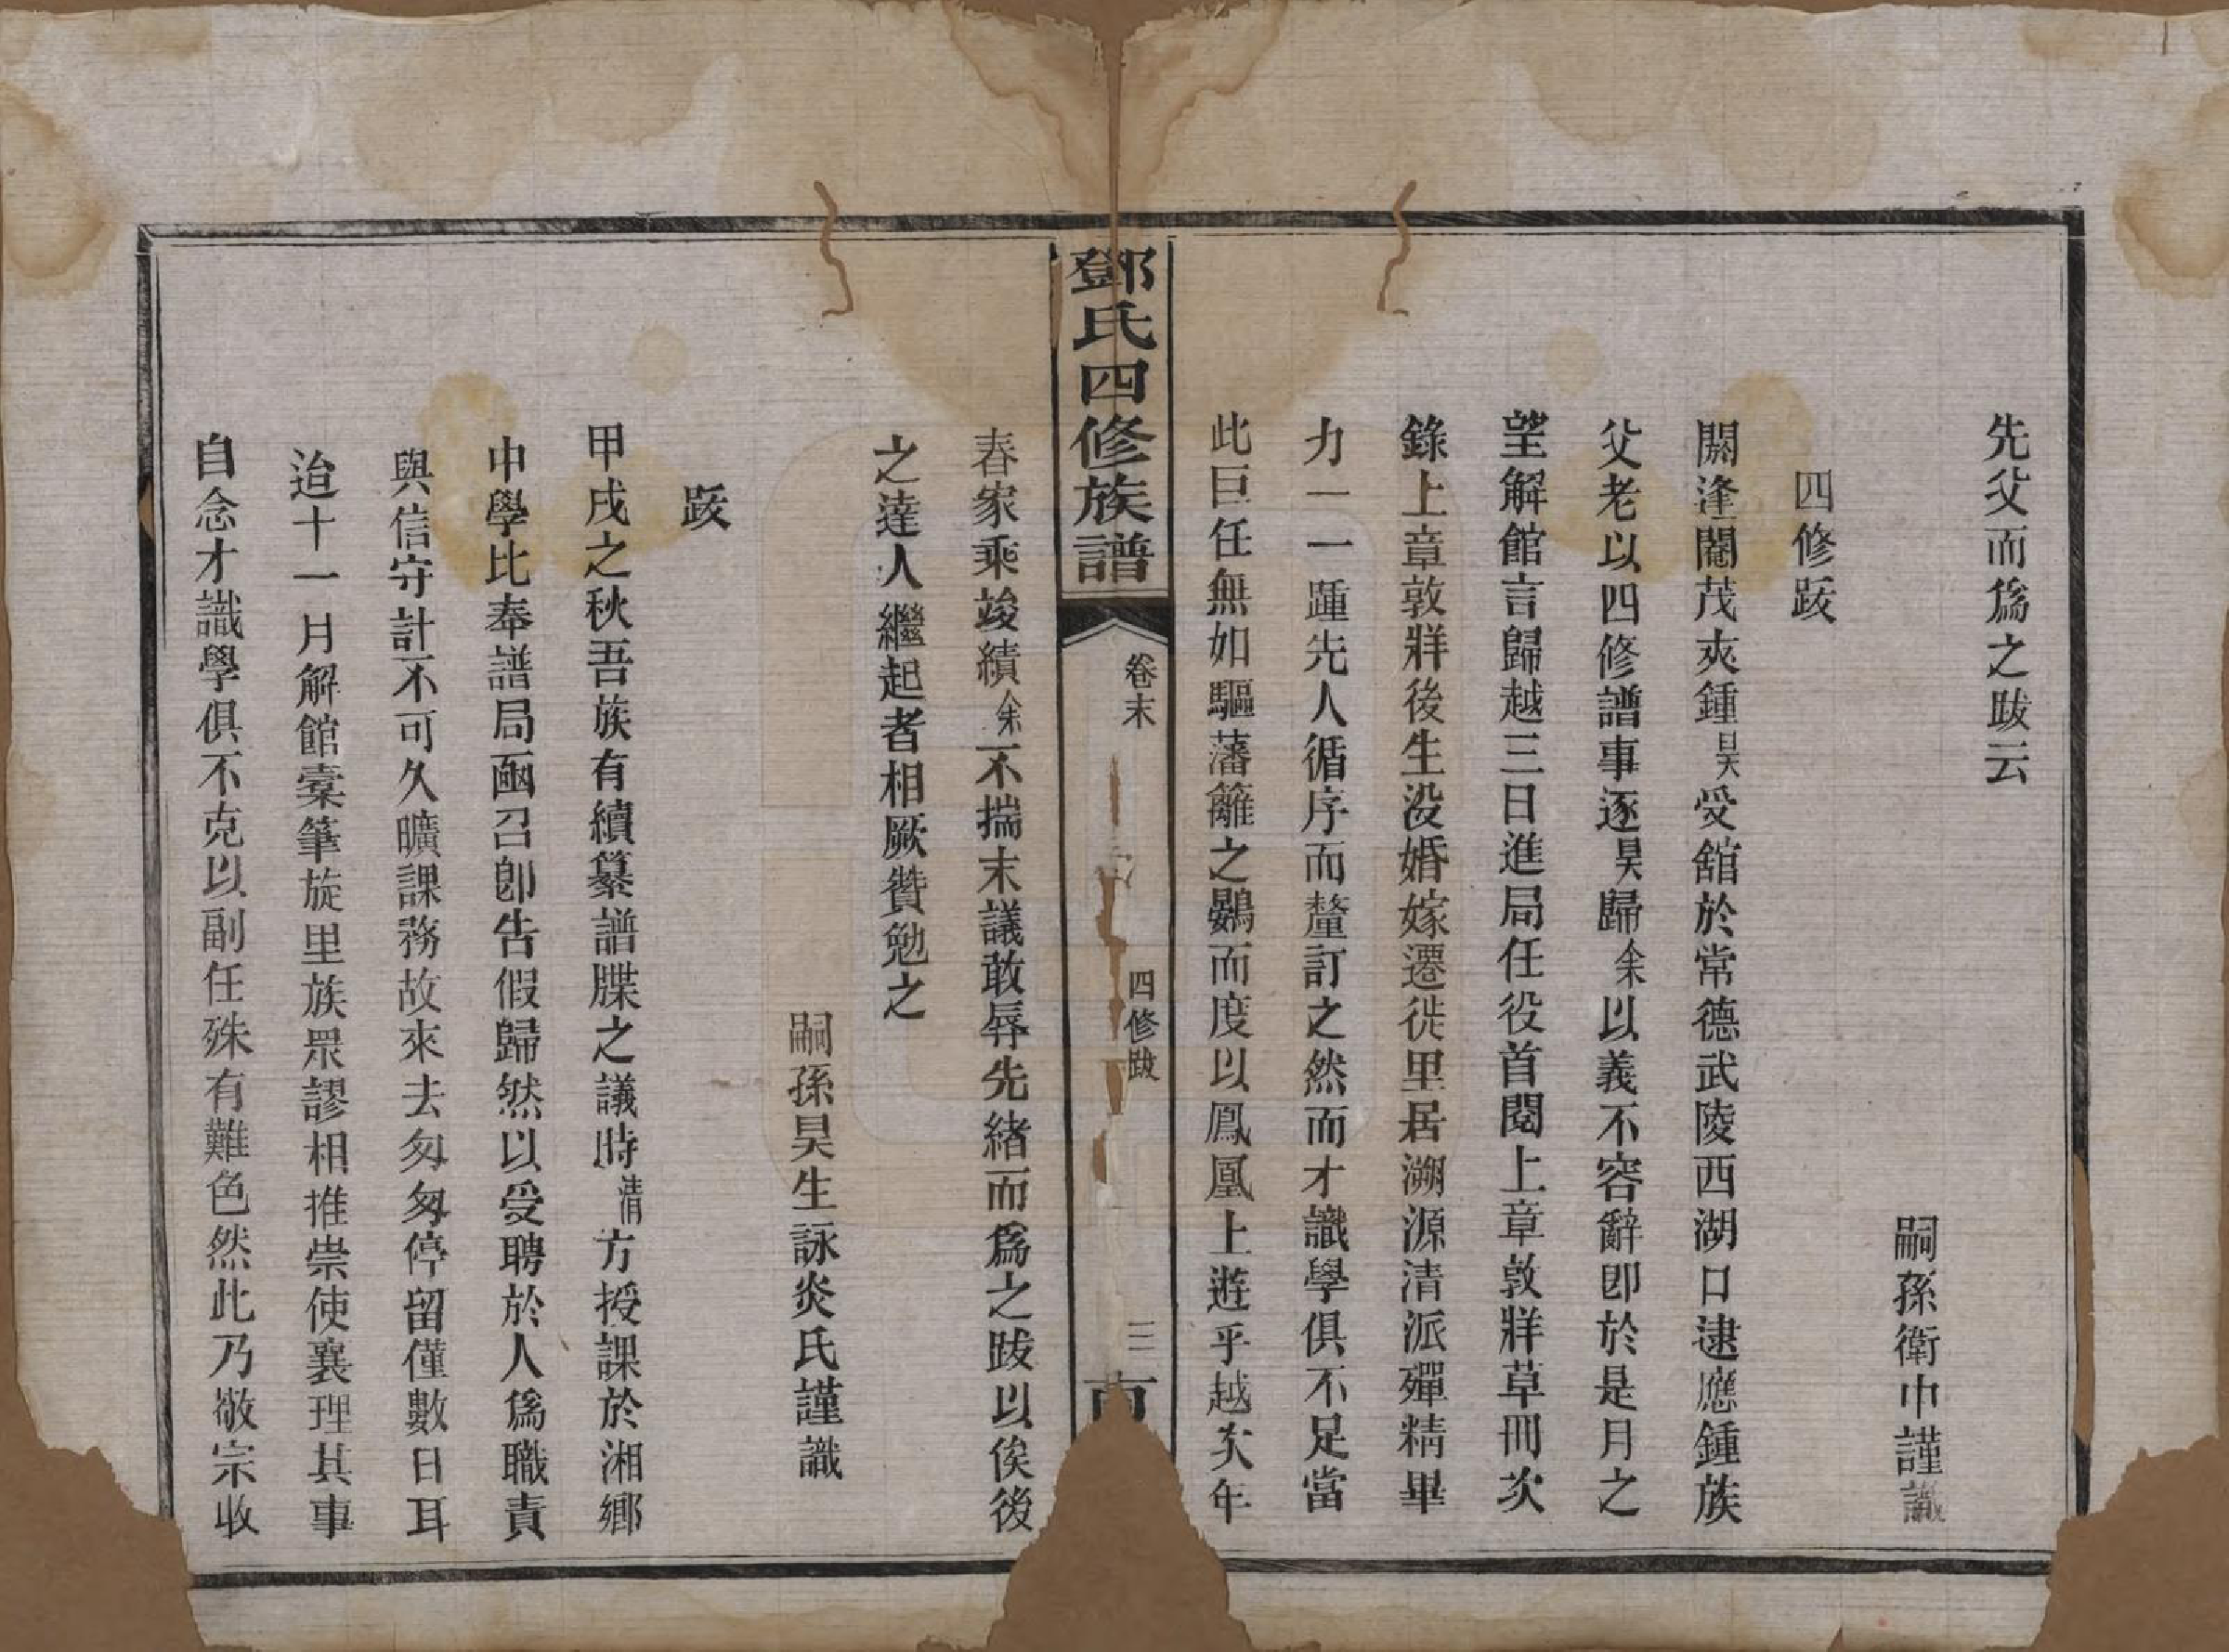 先父而爲之跋云
嗣孫衛巾謹識
四修跋
閼逢閹茂夾鍾昊受舘於常德武陵西湖口逮應鍾族
父老以四修譜事逐昊歸余以義不容辭卽於是月之
望解館言歸越三日進局任役首閱上章敦牂草冊次
錄上章敦牂後生没婚嫁遷徙里居溯源清派殫精畢
力一一踵先人循序而釐訂之然而才識學俱不足當
此巨任無如驅藩籬之鷃而度以鳳凰上遊乎越次年
鄧氏四修族譜
卷末
四修跋
三
春家乘竣績余不揣末議敢辱先緒而爲之跋以俟後
之達人繼起者相厥贊勉之
嗣孫昊生詠炎氏謹識
跋
甲戌之秋吾族有續纂譜牒之議時清方授課於湘鄉
中學比奉譜局凾召卽告假歸然以受聘於人爲職責
與信守計不可久曠課務故來去匆匆停留僅數日耳
迨十一月解館橐筆旋里族眾謬相推崇使襄理其事
自念才識學俱不克以副任殊有難色然此乃敬宗收